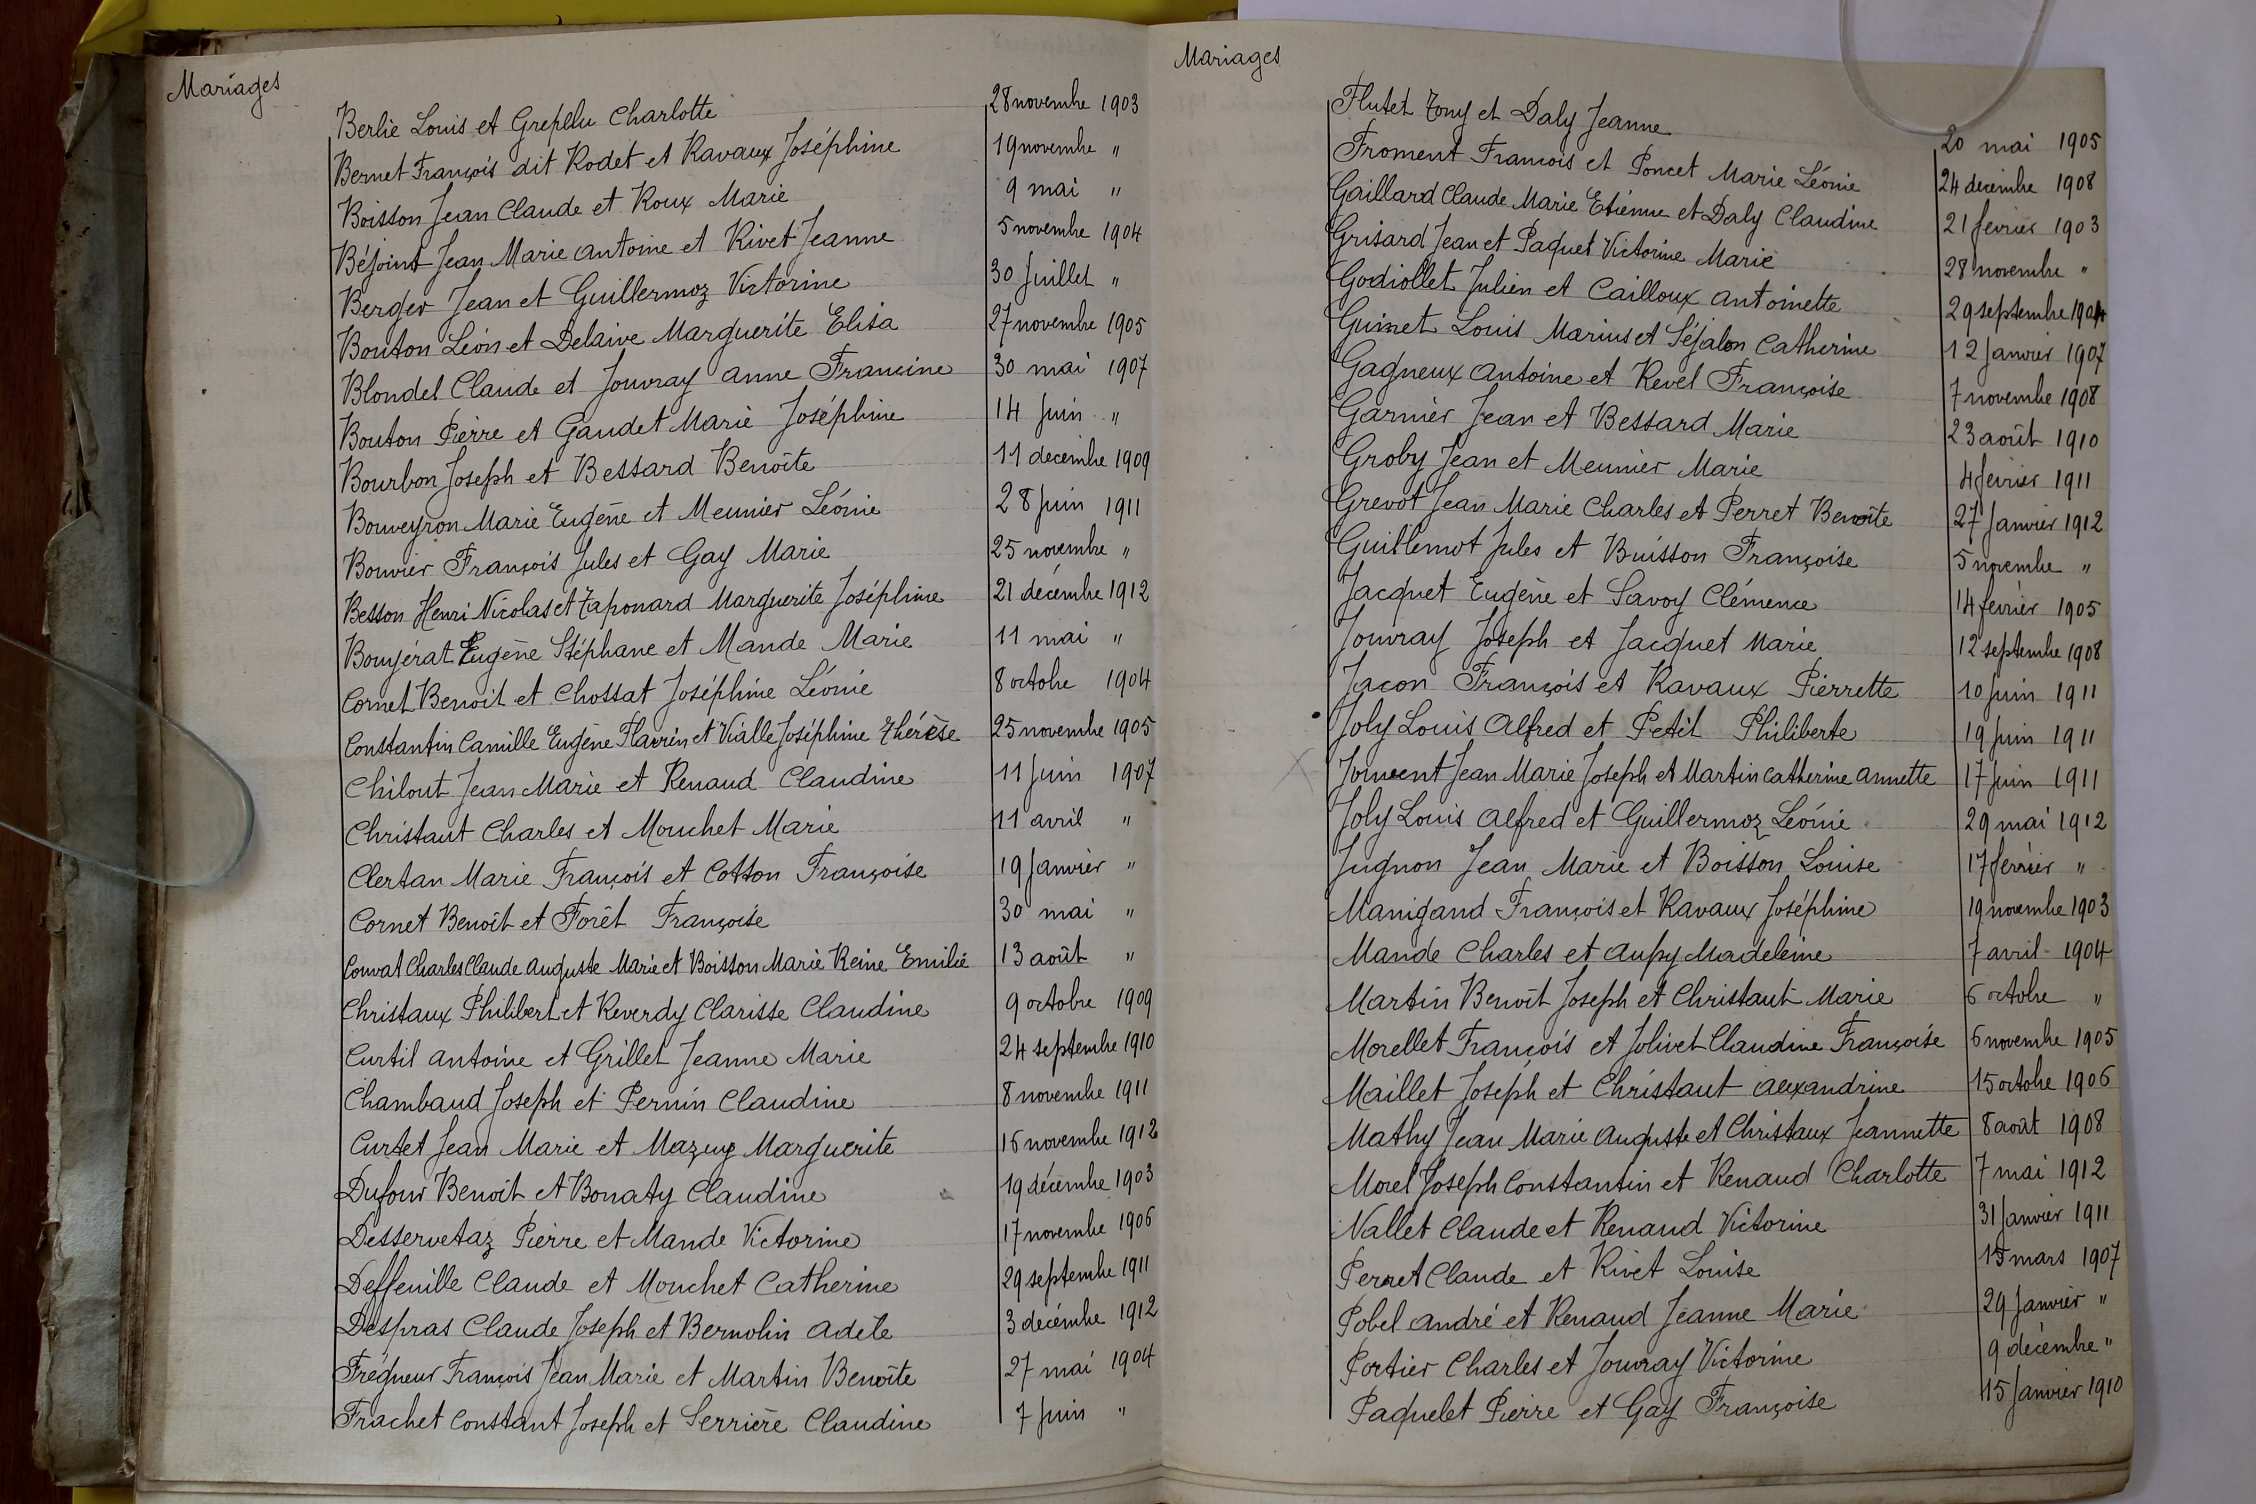 Mariages
Berlie Louis et Grepelu Charlotte 28 novembre 1903
Bernet François dit Rodet et Ravaux Joséphine 19 novembre "
Boisson Jean Claude et Roux Marie 9 mai "
Béjoint Jean Marie Antoine et Rivet Jeanne 5 novembre 1904
Berger Jean et Guillermoz Victorine 30 Juillet "
Bouton Léon et Delaive Marguerite Elisa 27 novembre 1905
Blondel Claude et Jouvray Anne Francine 30 mai 1907
Bouton Pierre et Gaudet Marie Joséphine 14 Juin "
Bourbon Joseph et Bessard Benoîte 11 decembre 1909
Bouveyron Marie Eugène et Meunier Léonie 28 Juin 1911
Bouvier François Jules et Gay Marie 25 novembre "
Besson Henri Nicolas et Taponard Marguerite Joséphine 21 décembre 1912
Boujérat Eugène Stéphane et Mande Marie 11 mai "
Cornet Benoit et Chossat Joséphine Léonie 8 octobre 1904
Constantin Camille Eugène Flavien et Vialle Joséphine Thérèse 25 novembre 1905
Chilout Jean Marie et Renaud Claudine 11 Juin 1907
Christaut Charles et Mouchet Marie 11 avril "
Clertan Marie François et Cotton Françoise 19 Janvier "
Cornet Benoît et Forêt Françoise 30 mai "
Convat Charles Claude Auguste Marie et Boisson Marie Reine Emilie 13 août "
Christaux Philibert et Reverdy Clarisse Claudine 9 octobre 1909
Curtil Antoine et Grillet Jeanne Marie 24 septembre 1910
Chambaud Joseph et Pernin Claudine 8 novembre 1911
Curtet Jean Marie et Mazuy Marguerite 16 novembre 1912
Dufour Benoit et Bonaty Claudine 19 décembre 1903
Desservetaz Pierre et Mande Victorine 17 novembre 1906
Deffeuille Claude et Mouchet Catherine 29 septembre 1911
Despras Claude Joseph et Bernolin Adèle 3 decembre 1912
Frégneur François Jean Marie et Martin Benoîte 27 mai 1904
Frachet Constant Joseph et Serrière Claudine 7 Juin "
Mariages
Flutet Tony et Daly Jeanne 20 mai 1905
Froment François et Poncet Marie Léonie 24 decembre 1908
Gaillard Claude Marie Etienne et Daly Claudine 21 fevrier 1903
Grisard Jean et Paquet Victorine Marie 28 novembre "
Godiollet Julien et Cailloux Antoinette 29 septembre 1904
Guinet Louis Marius et Séjalon Catherine 12 Janvier 1907
Gagneux Antoine et Revel Françoise 7 novembre 1908
Garnier Jean et Bessard Marie 23 août 1910
Groby Jean et Meunier Marie 4 fevrier 1911
Grevot Jean Marie Charles et Perret Benoîte 27 Janvier 1912
Guillemot Jules et Buisson Françoise 5 novembre "
Jacquet Eugène et Savoy Clémence 14 fevrier 1905
Jouvray Joseph et Jacquet Marie 12 septembre 1908
Jacon François et Ravaux Pierrette 10 Juin 1911
Joly Louis Alfred et Petit Philiberte 19 Juin 1911
Jouvent Jean Marie Joseph et Martin Catherine Annette 17 Juin 1911
Joly Louis Alfred et Guillermoz Léonie 29 mai 1912
Jugnon Jean Marie et Boisson Louise 17 fevrier "
Manigand François et Ravaux Joséphine 19 novembre 1903
Mande Charles et Aupy Madeleine 7 avril 1904
Martin Benoît Joseph et Christaut Marie 6 octobre "
Morellet François et Jolivet Claudine Françoise 6 novembre 1905
Maillet Joseph et Christaut Alexandrine 15 octobre 1906
Mathy Jean Marie Auguste et Christaux Jeannette 8 août 1908
Morel Joseph Constantin et Renaud Charlotte 7 mai 1912
Nallet Claude et Renaud Victorine 31 Janvier 1911
Perret Claude et Rivet Louise 15 mars 1907
Pobel André et Renaud Jeanne Marie 29 Janvier "
Portier Charles et Jouvray Victorine 9 décembre "
Paquelet Pierre et Gay Françoise 15 Janvier 1910